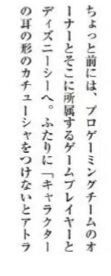 ちょっと前には、プロゲーミングチームのオ
ーナーとそこに所属するゲームプレイヤーと
ディズニーシーへ。ふたりに「キャラクター
の耳の形のカチューシャをつけないとアトラ